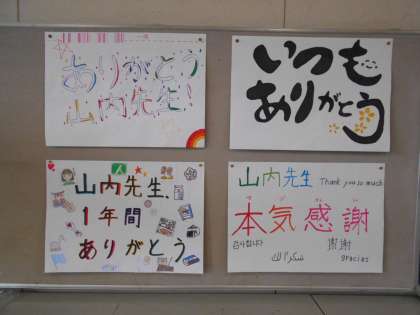 ありがとう
山内先生!
いつも
ありがとう
山内先生、
1年間
ありがとう
山内先生 Thank you so much
本気感謝
감사합니다
謝謝
شكرا لك
gracias